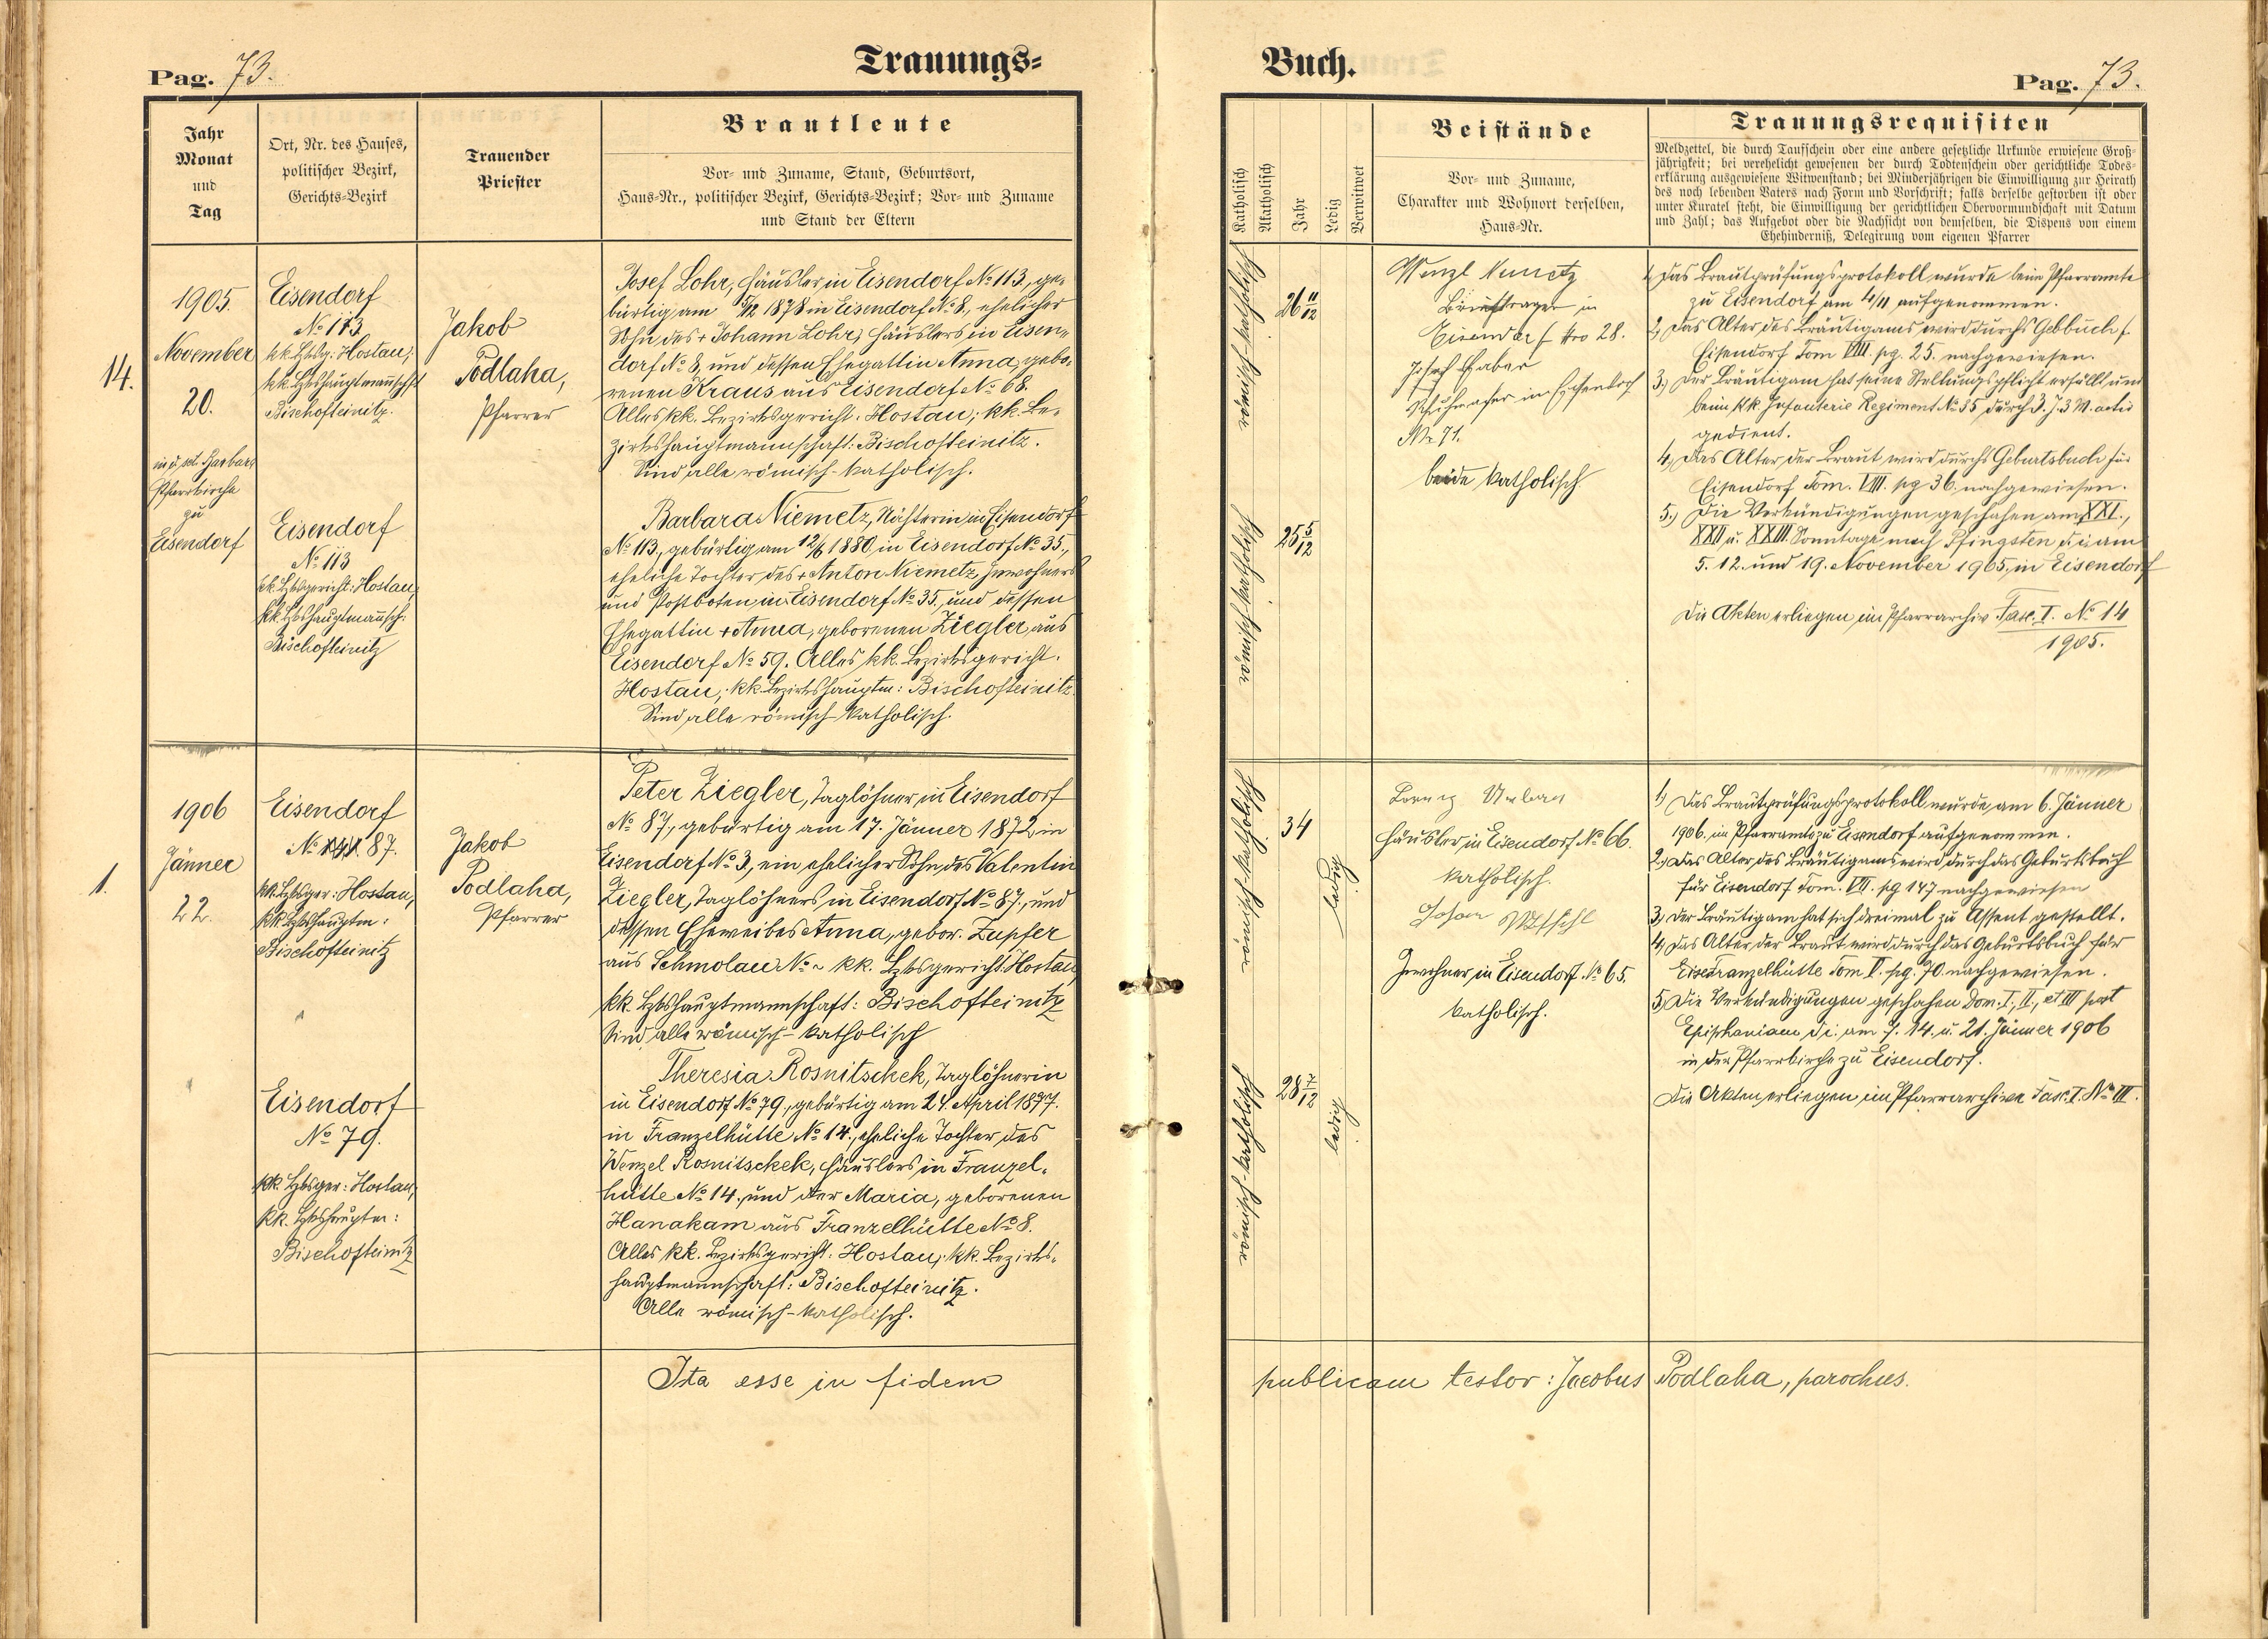 Pag. 73.
Trauungs=
Jahr
Monat
und
Tag
Ort, Nr. des Hauses,
politischer Bezirk,
Gerichts=Bezirk
Trauender
Priester
Brautleute
Vor= und Zuname, Stand, Geburtsort,
Haus=Nr., politischer Bezirk, Gerichts=Bezirk; Vor= und Zuname
und Stand der Eltern
14.
1905.
November
20.
in d. sct. Barbara
Pfarrkirche
zu
Eisendorf
Eisendorf
No 113
kk. Bzksg: Hostau;
kk. Bzkshauptmannschft
Bischofteinitz.
Jakob
Podlaha,
Pfarrer
Josef Lohr, Häusler in Eisendorf No 113., ge=
bürtig am 5/12 1878 in Eisendorf No 8., ehelicher
Sohn des + Johann Lohr, Häuslers in Eisen=
dorf No 8, und dessen Ehegattin Anna, gebo=
renen Kraus aus Eisendorf No 68.
Alles kk. Bezirksgericht: Hostau; kk. Be=
zirkshauptmannschaft: Bischofteinitz.
Sind alle römisch-katholisch.
Eisendorf
No 113
kk. Bzksgericht: Hostau,
kk. Bzkshauptmannsch:
Bischofteinitz
Barbara Niemetz, Nähterin in Eisendorf
No 113., gebürtig am 12/6 1880 in Eisendorf No 35.,
eheliche Tochter des + Anton Niemetz, Inwohners
und Postboten in Eisendorf No 35., und dessen
Ehegattin + Anna, geborenen Ziegler, aus
Eisendorf No 59. Alles kk. Bezirksgericht:
Hostau; kk. Bezirkshauptm: Bischofteinitz.
Sind alle römisch-katholisch.
1.
1906
Jänner
22.
Eisendorf
No 87.
kk. Bzksger: Hostau,
kk. Bzkshauptm:
Bischofteinitz
Jakob
Podlaha,
Pfarrer
Peter Ziegler, Taglöhner in Eisendorf
No 87., gebürtig am 17. Jänner 1872 in
Eisendorf No 3, ein ehelicher Sohn des Valentin
Ziegler, Taglöhners in Eisendorf No 87., und
dessen Eheweibes Anna, gebor. Zupfer
aus Schmolau No ~ kk. Bzksgericht: Hostau,
kk. Bzkshauptmannschaft: Bischofteinitz
Sind alle römisch-katholisch
Eisendorf
No 79.
kk. Bzksger: Hostau,
kk. Bzkshauptm:
Bischofteinitz
Theresia Rosnitschek, Taglöhnerin
in Eisendorf No 79., gebürtig am 24. April 1877.
in Franzelhütte No 14., eheliche Tochter des
Wenzel Rosnitschek, Häuslers in Franzel=
hütte No 14., und der Maria, geborenen
Hanakam aus Franzelhütte No 8.
Alles kk. Bezirksgericht: Hostau; kk. Bezirks=
hauptmannschaft: Bischofteinitz.
Alle römisch-katholisch.
Ita esse in fidem
Buch.
Pag. 73.
Katholisch
Akatholisch
Jahr
Ledig
Verwitwet
Beistände
Vor= und Zuname,
Charakter und Wohnort derselben,
Haus=Nr.
Trauungsrequisiten
Meldzettel, die durch Taufschein oder eine andere gesetzliche Urkunde erwiesene Groß=
jährigkeit; bei verehelicht gewesenen der durch Todtenschein oder gerichtliche Todes=
erklärung ausgewiesene Witwenstand; bei Minderjährigen die Einwilligung zur Heirath
des noch lebenden Vaters nach Form und Vorschrift; falls derselbe gestorben ist oder
unter Kuratel steht, die Einwilligung der gerichtlichen Obervormundschaft mit Datum
und Zahl; das Aufgebot oder die Nachsicht von demselben, die Dispens von einem
Ehehinderniß, Delegirung vom eigenen Pfarrer
römisch-katholisch
26 11/12
römisch-katholisch
25 5/12
Wenzl
Briefträger in
Eisendorf Nro 28.
Josef Faber
in Eisendorf
Nr 71.
beide katholisch
1, Das Brautprüfungsprotokoll wurde beim Pfarramte
zu Eisendorf am 4/11 aufgenommen.
2, Das Alter des Bräutigams wird durchs Gebbuch f.
Eisendorf Tom VIII. pg. 25. nachgewiesen.
3, Der Bräutigam hat seine Stellungspflicht erfüllt und
beim kk. Infanterie Regiment No 35 durch 3. J. 3 M. activ
gedient.
4, Das Alter der Braut wird durchs Geburtsbuch für
Eisendorf Tom. VIII. pg 36. nachgewiesen.
5, Die Verkündigungen geschahen am XXI.,
XXII u. XXIII. Sonntage nach Pfingsten d. i. am
5. 12. und 19. November 1905. in Eisendorf
Die Akten erliegen im Pfarrarchiv Fasc. I. No 14
1905.
römisch-katholisch
34
ledig
römisch-katholisch
28 7/12
ledig
Lorenz Urban
Häusler in Eisendorf No 66.
katholisch.
Inwohner in Eisendorf No 65.
katholisch.
1, Das Brautprüfungsprotokoll wurde am 6. Jänner
1906. im Pfarramte zu Eisendorf aufgenommen.
2, Das Alter des Bräutigams wird durch das Geburtsbuch
für Eisendorf Tom. VII. pg 147 nachgewiesen
3, Der Bräutigam hat sich dreimal zu Assent gestellt.
4, Das Alter der Braut wird durch das Geburtsbuch für
Franzelhütte Tom II. pg. 70. nachgewiesen.
5, Die Verkündigungen geschahen Dom. I., II., et III post
Epiphaniam d. i. am 7. 14. u. 21. Jänner 1906
in der Pfarrkirche zu Eisendorf.
Die Akten erliegen im Pfarrarchive Fasc. I. No III.
publicam testor: Jacobus Podlaha, parochus.